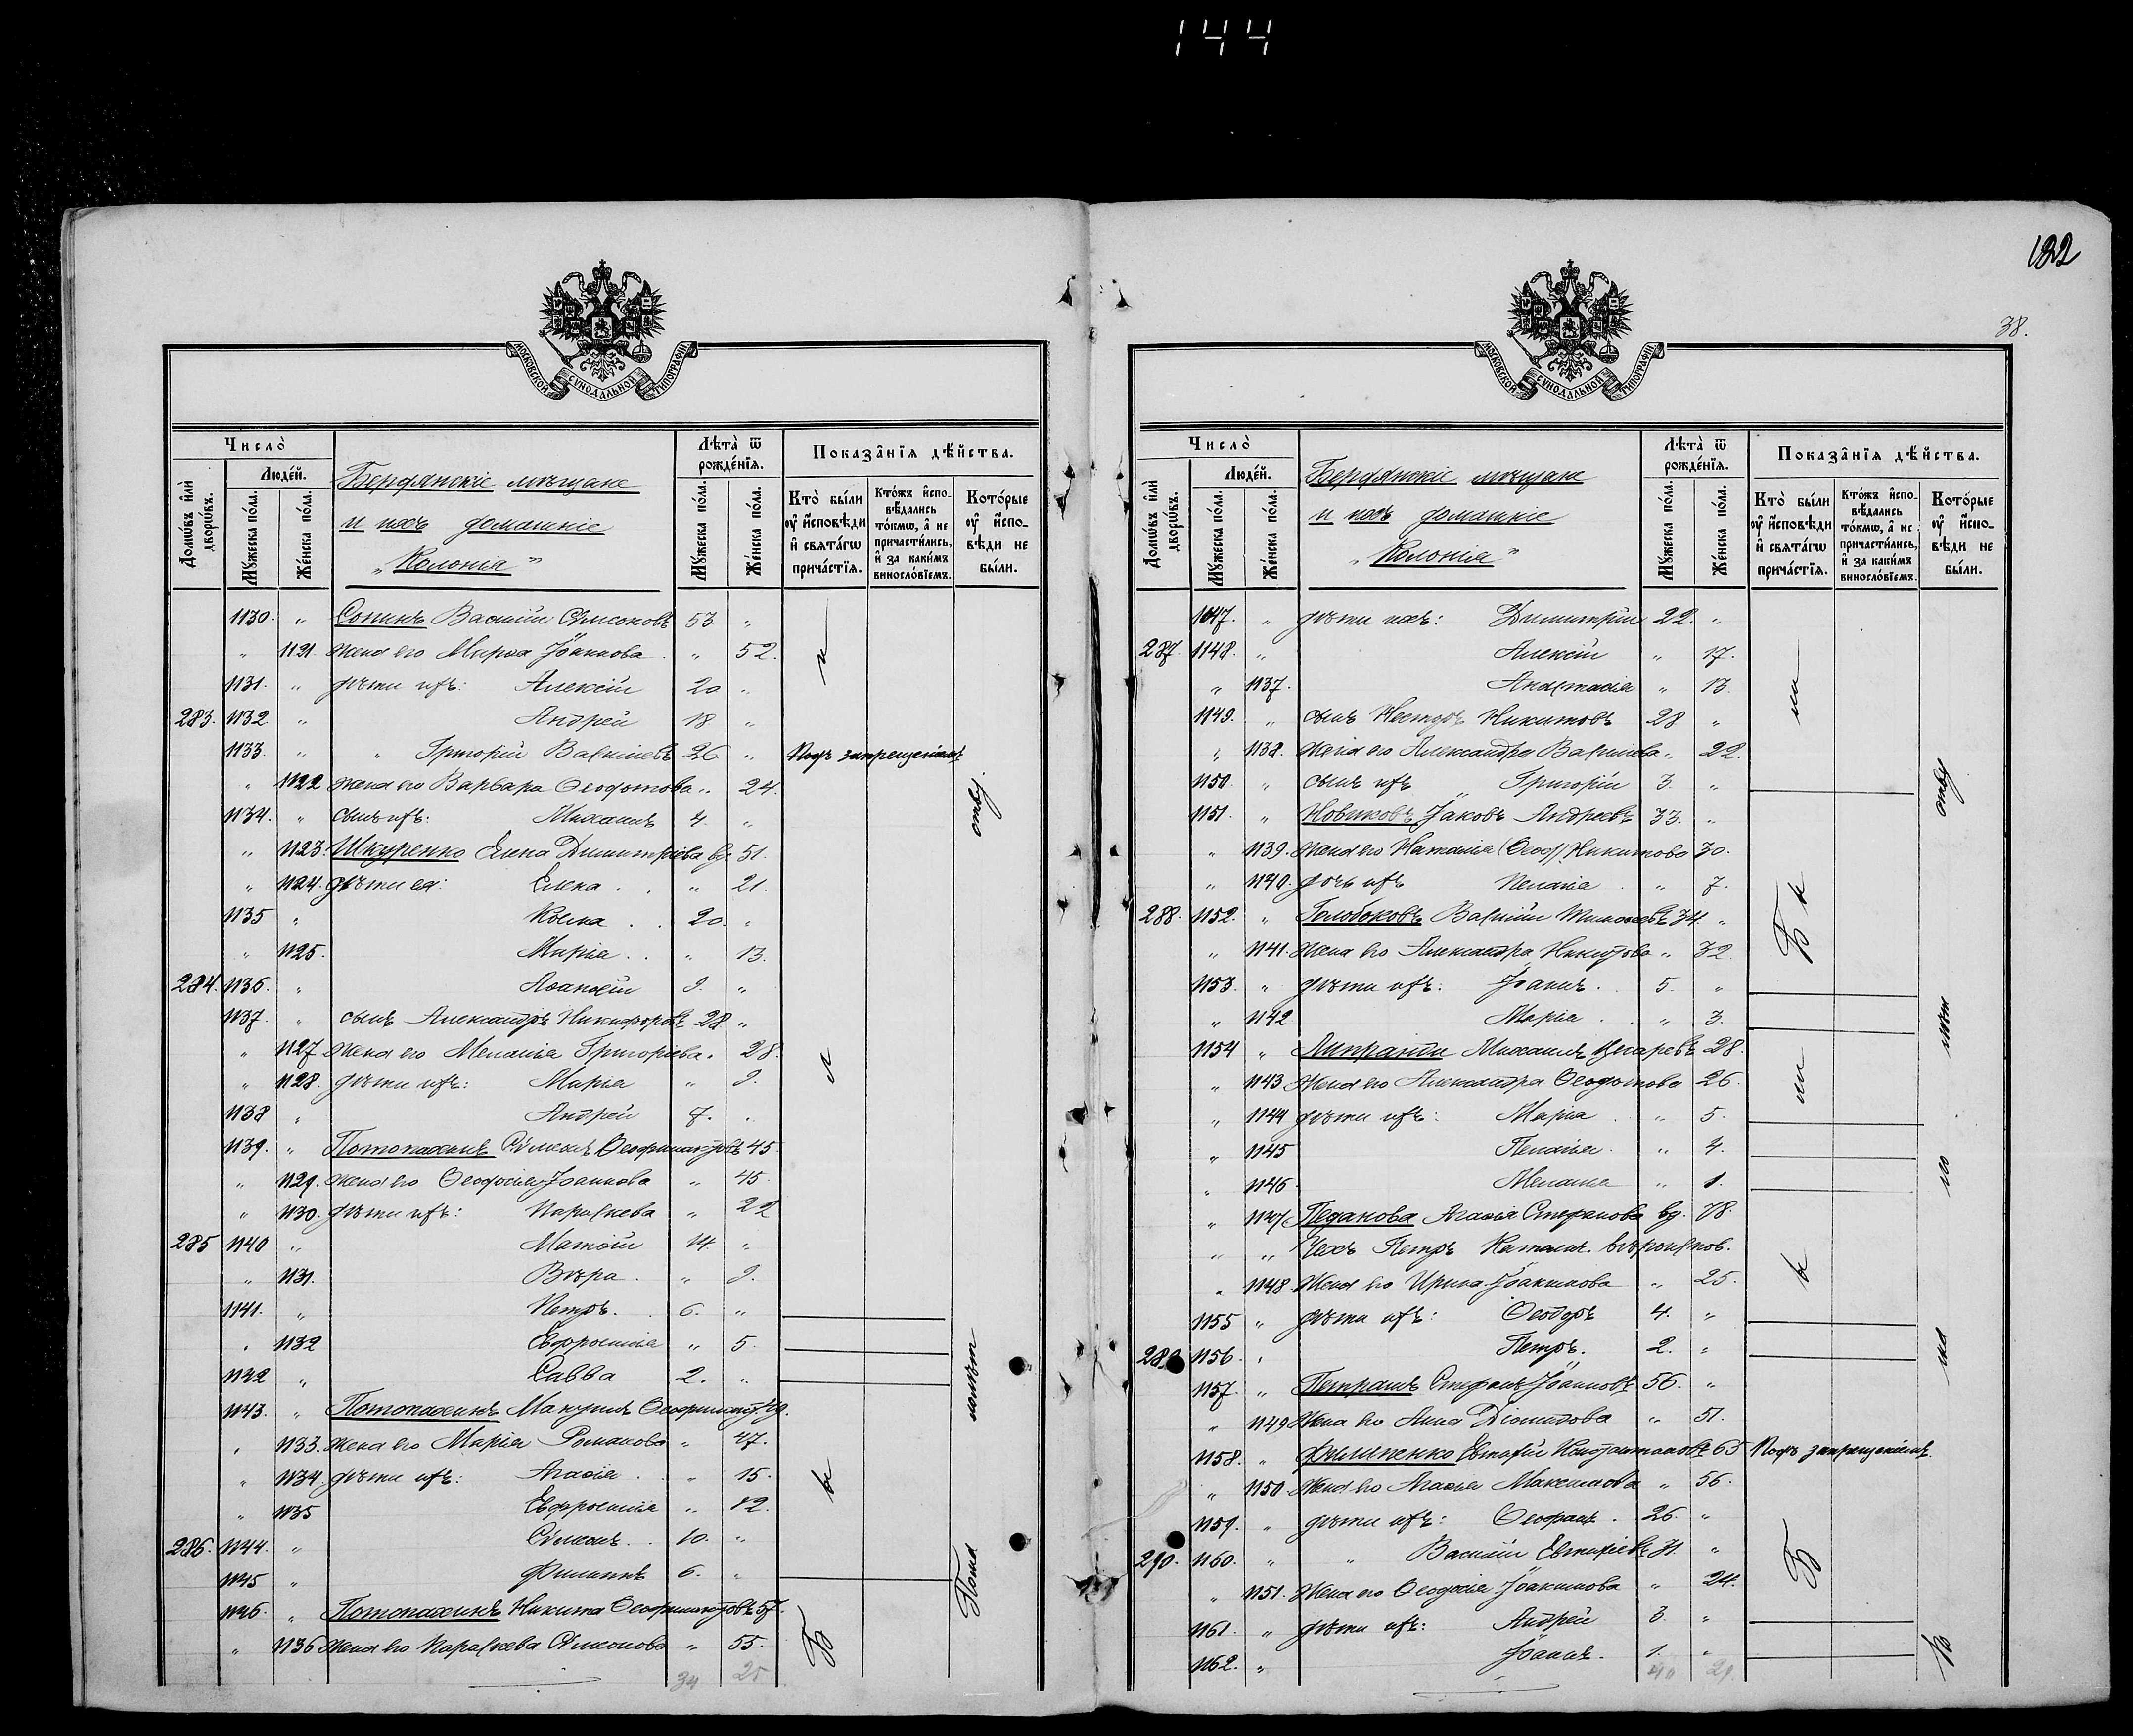 144
132
38.
МОСКОВСКОЙ СѴНОДАЛЬНОЙ ТИПОГРАФІИ
Число̀
Людéй.
Домѡ́въ и҆лѝ дворѡ́въ.
Мꙋ́жеска по́ла.
Же́нска по́ла.
Бердянскіе мѣщане
и ихъ домашніе
„Колонія“
Лѣта̀ ѿ рожде́нїѧ.
Мꙋ́жеска по́ла.
Же́нска по́ла.
Показа̑нїѧ дѣ́йства.
Кто̀ бы́ли ᲂу҆ и҆сповѣ́ди и҆ свѧта́гѡ прича́стїѧ.
Кто́жъ и҆спо-вѣ́дались то́кмѡ, а҆ не причасти́лись, и҆ за каки́мъ винослѡ́вїемъ.
Кото́рые ᲂу҆ и҆спо-вѣ́ди не бы́ли.
1130. „ Сопинъ Василій Сѵмеоновъ 53 „
„ 1121. жена его Марѳа Іоаннова „ 52.
1131. „ дѣти ихъ: Алексій 20 „
283. 1132 „ Андрей 18 „
1133. „ „ Григорій Васильевъ 26 „ Подъ запрещеніемъ
„ 1122 жена его Варвара Ѳеодотова „ 24.
1134. „ сынъ ихъ: Михаилъ 4. „
„ 1123. Шкуренко Елена Димитріева вд. 51.
„ 1124. дѣти ея: Елена „ 21.
1135 „ 20. „
„ 1125. Марія „ 13.
284. 1136. „ Аѳанасій 9. „
1137. „ сынъ Александръ Никифоровъ 28 „
„ 1127 жена его Меланія Григоріева „ 28.
„ 1128. дѣти ихъ: Марія „ 9.
1138 „ Андрей 7. „
1139. „ Потопахинъ Сѵмеонъ 45
„ 1129. жена его Ѳеодосія Іоаннова „ 45
„ 1130. дѣти ихъ: Параскева „ 22
285 1140 „ Матѳій 14. „
„ 1131. Вѣра „ 9.
1141. „ Петръ. 6. „
„ 1132 Евфросинія „ 5.
1142 „ Савва 2. „
1143. „ Потопахинъ
„ 1133. жена его Марія Романова „ 47.
„ 1134. дѣти ихъ: Агаѳія „ 15.
„ 1135 Евфросинія „ 12.
286. 1144. „ Сѵмеонъ 10. „
1145 „ Филиппъ 6. „
1146. „ Потопахинъ Никита 57.
„ 1136 жена его Параскева Сѵмеонова „ 55.
34 25
Число̀
Людéй.
Домѡ́въ и҆лѝ дворѡ́въ.
Мꙋ́жеска по́ла.
Же́нска по́ла.
Бердянскіе мѣщане
и ихъ домашніе
„Колонія“
Лѣта̀ ѿ рожде́нїѧ.
Мꙋ́жеска по́ла.
Же́нска по́ла.
Показа̑нїѧ дѣ́йства.
Кто̀ бы́ли ᲂу҆ и҆сповѣ́ди и҆ свѧта́гѡ прича́стїѧ.
Кто́жъ и҆спо-вѣ́дались то́кмѡ, а҆ не причасти́лись, и҆ за каки́мъ винослѡ́вїемъ.
Кото́рые ᲂу҆ и҆спо-вѣ́ди не бы́ли.
1147. „ дѣти ихъ: Димитрій 22. „
287. 1148. „ Алексій „ 17.
„ 1137. Анастасія „ 13.
1149. „ сынъ Несторъ Никитовъ 28 „
„ 1138. жена его Александра Васильева „ 22.
1150. „ сынъ ихъ Григорій 3. „
1151. „ Новиковъ Іаковъ Андреевъ 33. „
„ 1139. жена его Наталія Никитова 30.
„ 1140. дочь ихъ Пелагія „ 7.
288. 1152. „ Голобоковъ Василій 34. „
„ 1141. жена его Александра Никитова „ 32.
1153. „ дѣти ихъ: Іоаннъ 5. „
„ 1142. Марія „ 3.
1154 „ Липранди Михаилъ 28.
„ 1143 жена его Александра Ѳеодотова 26.
„ 1144 дѣти ихъ: Марія „ 5.
„ 1145 Пелагія „ 4.
„ 1146. Меланія „ 1.
„ 1147. Педанова Агаѳія Стефанова вд. 78.
„ „ Чехъ Петръ Католич. вѣроиспов.
„ 1148. жена его Ирина Іоакимова „ 25.
1155 „ дѣти ихъ: Ѳеодоръ 4. „
289 1156. „ Петръ. 2. „
1157. „ Петрашъ Стефанъ Іоанновъ 56. „
„ 1149 жена его Анна Діомидова „ 51.
1158. „ Филипенко Евтихій Константиновъ 65 Подъ запрещеніемъ.
„ 1150. жена его Агаѳія Максимова „ 56.
1159. „ дѣти ихъ: Ѳеофанъ 26. „
290. 1160. „ „ Василій Евтихіевъ 31. „
„ 1151. жена его Ѳеодосія Іоакимова „ 24.
1161. „ дѣти ихъ: Андрей 3. „
1162. „ Іоаннъ. 1. „
40 21.